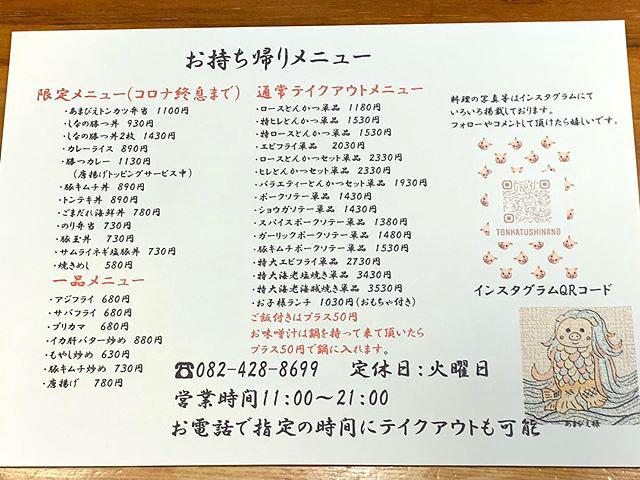 お持ち帰りメニュー
限定メニュー(コロナ終息まで)
・あまびえトンカツ弁当 1100円
・しなの勝つ丼 930円
・しなの勝つ丼2枚 1430円
・カレーライス 890円
・勝つカレー 1130円
(唐揚げトッピングサービス中)
・豚キムチ丼 890円
・トンテキ丼 890円
・ごまだれ海鮮丼 780円
・のり弁当 730円
・豚玉丼 730円
・サムライネギ塩豚丼 730円
・焼きめし 580円
一品メニュー
・アジフライ 680円
・サバフライ 680円
・ブリカマ 680円
・イカ肝バター炒め 880円
・もやし炒め 630円
・豚キムチ炒め 730円
・唐揚げ 780円
通常テイクアウトメニュー
・ロースとんかつ単品 1180円
・特ヒレとんかつ単品 1530円
・特ロースとんかつ単品 1530円
・エビフライ単品 2030円
・ロースとんかつセット単品 2330円
・ヒレとんかつセット単品 2330円
・バラエティーとんかつセット単品 1930円
・ポークソテー単品 1430円
・ショウガソテー単品 1430円
・スパイスポークソテー単品 1380円
・ガーリックポークソテー単品 1480円
・豚キムチポークソテー単品 1530円
・特大エビフライ単品 2730円
・特大海老塩焼き単品 3430円
・特大海老海賊焼き単品 3530円
・お子様ランチ 1030円(おもちゃ付き)
ご飯付きはプラス50円
お味噌汁は鍋を持って来て頂いたら
プラス50円で鍋に入れます。
料理の写真等はインスタグラムにて
いろいろ掲載しております。
フォローやコメントして頂けたら嬉しいです。
TONKATUSHINANO
インスタグラムQRコード
あまびえ様
☎082-428-8699 定休日:火曜日
営業時間11:00～21:00
お電話で指定の時間にテイクアウトも可能